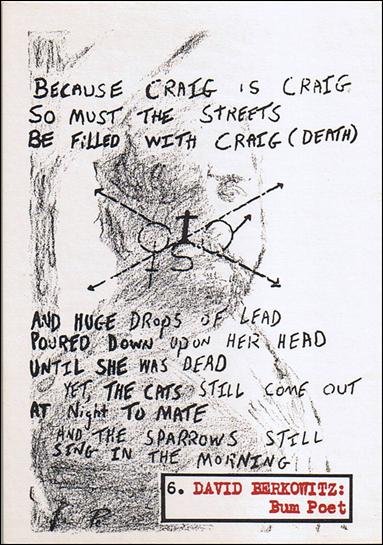 BECAUSE CRAIG IS CRAIG
SO MUST THE STREETS
BE FILLED WITH CRAIG (DEATH)
S
AND HUGE DROPS OF LEAD
POURED DOWN UPON HER HEAD
UNTIL SHE WAS DEAD
YET, THE CATS STILL COME OUT
AT Night TO MATE
AND THE SPARROWS STILL
SING IN THE MORNING
6. DAVID BERKOWITZ:
Bum Poet